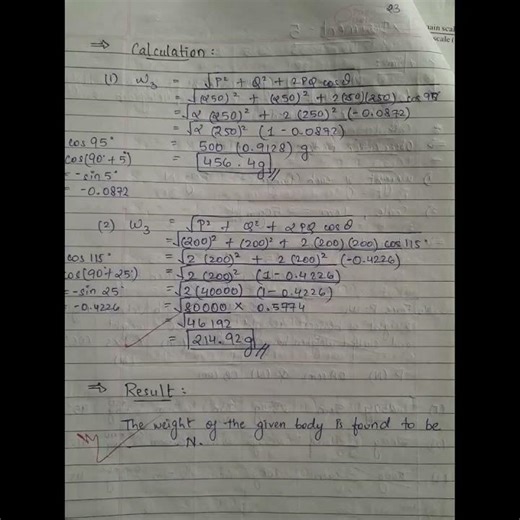 23
tain scal
scale (
⇒ Calculation :
(1) W₃ = √P² + Q² + 2PQ cosθ
= √(250)² + (250)² + 2(250)(250) cos 95°
= √2 (250)² + 2 (250)² (-0.0872)
= √2 (250)² (1 - 0.0872)
cos 95° = 500 (0.9128) g
cos(90° + 5°) = 456.4g //
= -sin 5°
= -0.0872
(2) W₃ = √P² + Q² + 2PQ cosθ
= √(200)² + (200)² + 2 (200) (200) cos 115°
cos 115° = √2 (200)² + 2 (200)² (-0.4226)
cos(90°+25°) = √2 (200)² (1 - 0.4226)
= -sin 25° = √2 (40000) (1 - 0.4226)
= -0.4226 = √80000 × 0.5774
= √46192
= 214.92g //
⇒ Result :
The weight of the given body is found to be
______ N.